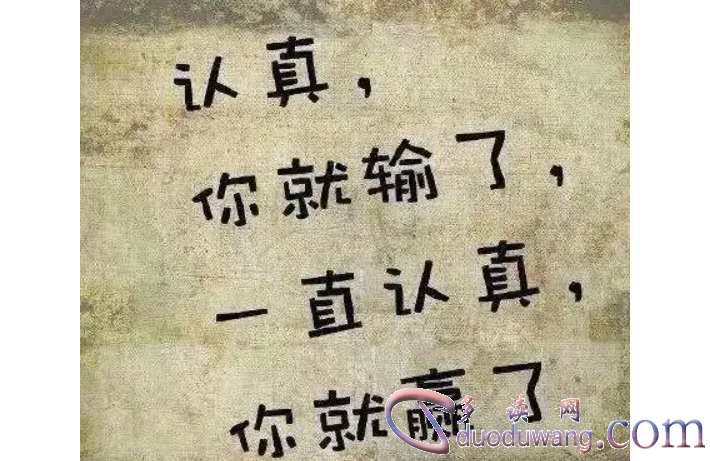 认真，
你就输了，
一直认真，
你就赢了
多读网
duoduwang.com